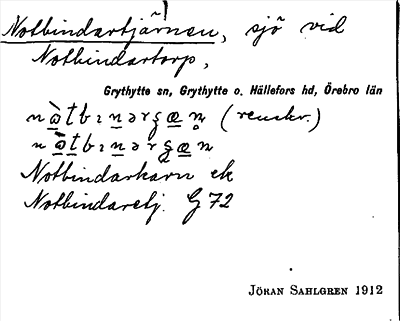 Notbindartjärnen, sjö vid
Notbindartorp,
Grythytte sn, Grythytte o. Hällefors hd, Örebro län
(renskr.)
Notbindarkarn ek
Notbindaretj. G 72
JÖRAN SAHLGREN 1912